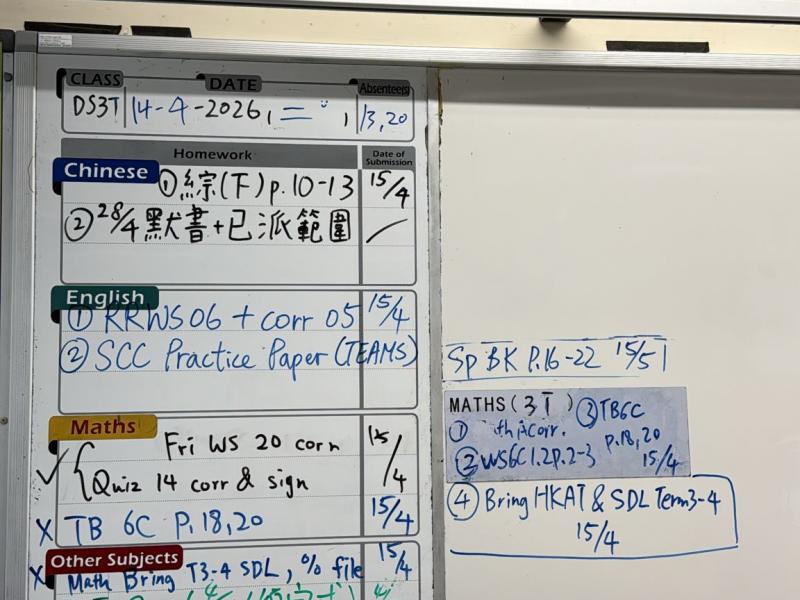 CLASS DATE Absentee(s)
DS3T 14-4-2026, 二, 13, 20
Homework Date of Submission
Chinese
① 綜(下) p.10-13 15/4
② 28/4 默書+已派範圍 /
English
① RRWS06 + corr 05 15/4
② SCC Practice Paper (TEAMS)
Maths
Fri WS 20 corr 15/4
Quiz 14 corr & sign
TB 6C P.18,20 15/4
Other Subjects
Math Bring T3-4 SDL, % file 15/4
Sp BK P.16-22 15/5
MATHS(3T) ③ TB6C
① corr. P.18,20
② WS6C1.2P.2-3 15/4
④ Bring HKAT & SDL Term3-4
15/4